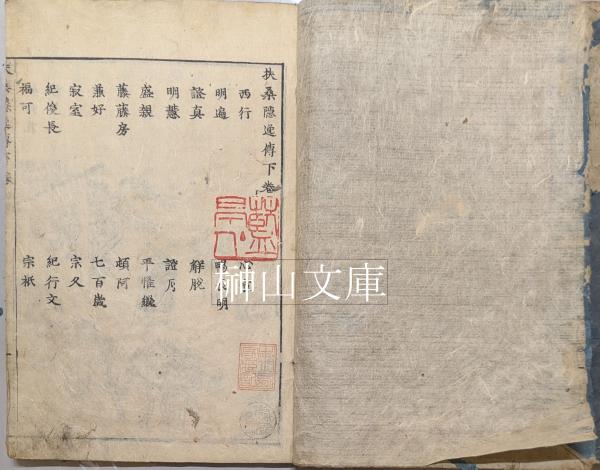 扶桑隱逸傳下卷
西行
明遍
證真 解脫
明慧 證月
盛親 平惟繼
藤藤房 頓阿
兼好 七百歲
寂室 宗久
紀俊長 紀行文
福可 宗祇
榊山文庫